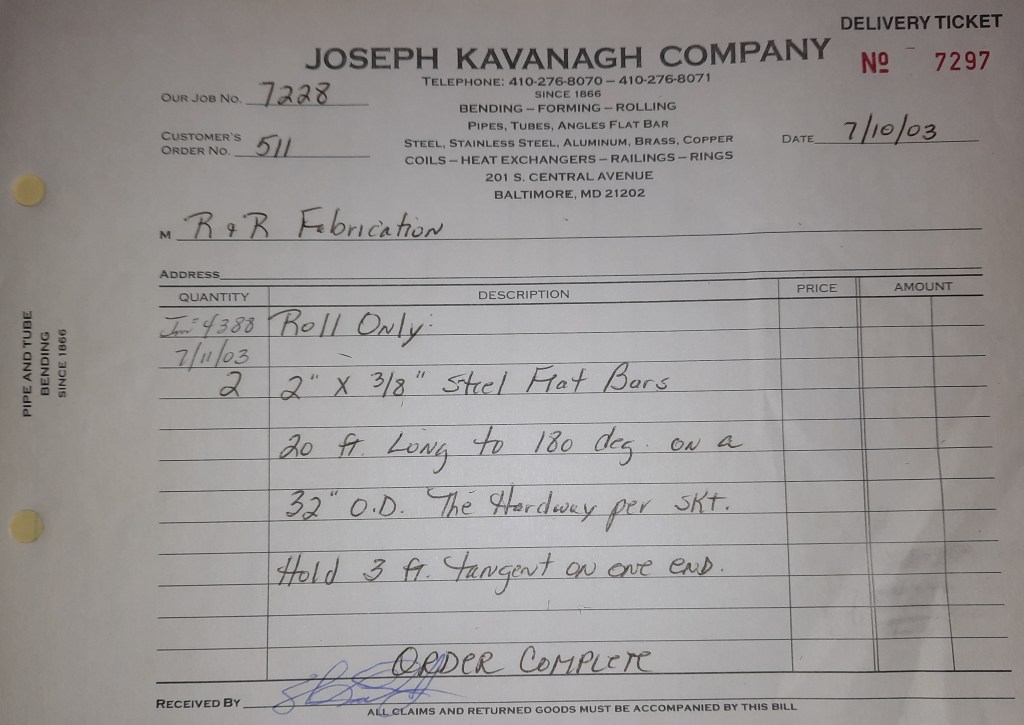 DELIVERY TICKET
JOSEPH KAVANAGH COMPANY
Nº 7297
TELEPHONE: 410-276-8070 – 410-276-8071
SINCE 1866
OUR JOB NO. 7228
BENDING – FORMING – ROLLING
PIPES, TUBES, ANGLES FLAT BAR
CUSTOMER'S ORDER NO. 511
STEEL, STAINLESS STEEL, ALUMINUM, BRASS, COPPER
DATE 7/10/03
COILS – HEAT EXCHANGERS – RAILINGS – RINGS
201 S. CENTRAL AVENUE
BALTIMORE, MD 21202
M R & R Fabrication
ADDRESS
QUANTITY DESCRIPTION PRICE AMOUNT
4388 Roll Only
7/11/03
2 2" X 3/8" Steel Flat Bars
20 ft. Long to 180 deg. on a
32" O.D. The Hardway per SKT.
Hold 3 ft. tangent on one end.
ORDER COMPLETE
RECEIVED BY
ALL CLAIMS AND RETURNED GOODS MUST BE ACCOMPANIED BY THIS BILL
PIPE AND TUBE
BENDING
SINCE 1866